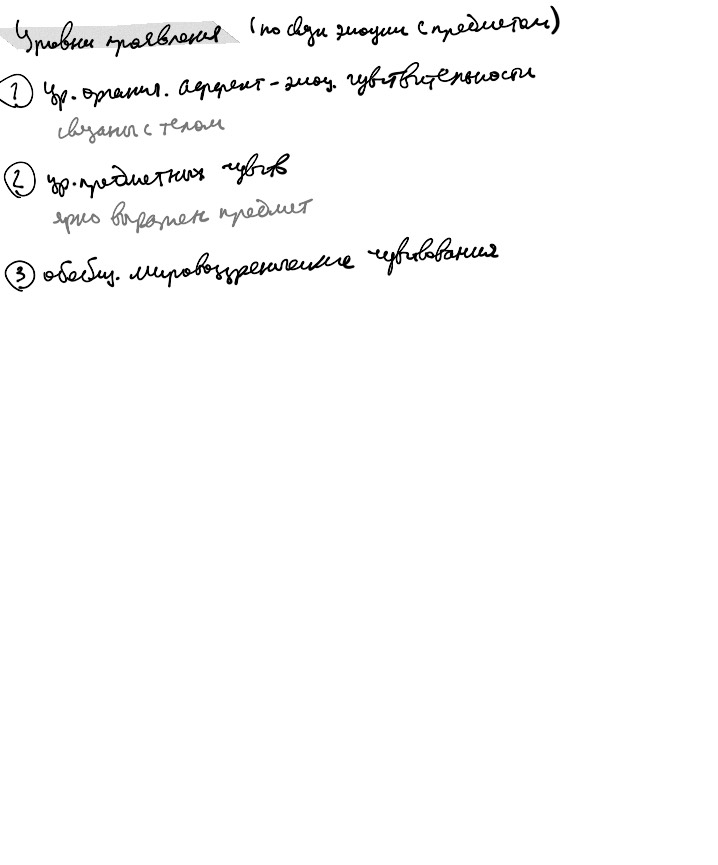 Уровни проявления (по связи эмоции с предметом)
① Ур. органич. аффект-эмоц. чувствительности
связаны с телом
② ур. предметных чувств
ярко выражен предмет
③ обобщ. мировоззренческие чувствования